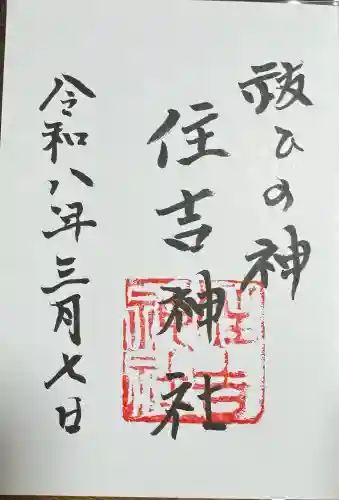 祓ひの神
住吉神社
令和八年三月七日
住吉神社